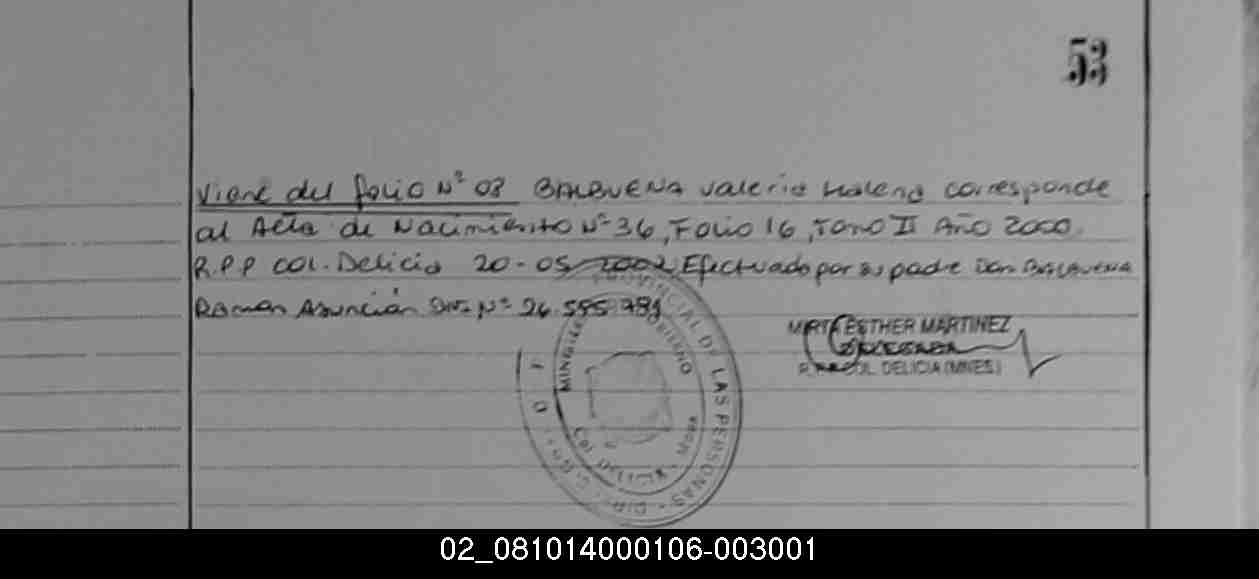 53
Viene del folio Nº 03 BALBUENA Valeria Malena corresponde
al Acta de Nacimiento Nº 36, Folio 16, Tomo II Año 2000.
R.P.P COL. Delicia 20-05-2002 Efectuado por su padre Don BALBUENA
Ramon Asunción DNI Nº 26.595.789
PROVINCIAL DE LAS PERSONAS
GOBIERNO
COL DELICIA
MIRTA ESTHER MARTINEZ
DELEGADA
COL. DELICIA (MNES)
02_081014000106-003001